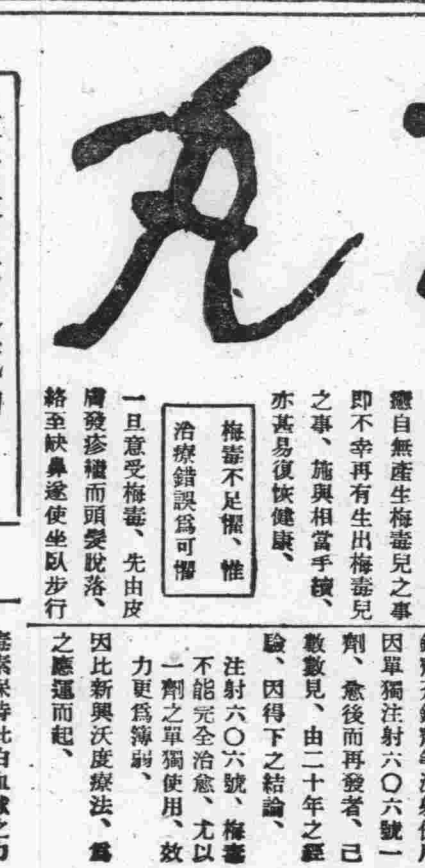 癒自無產生梅毒兒之事
即不幸再有生出梅毒兒
之事、施與相當手續、
亦甚易復恢健康、
梅毒不足懼、惟
治療錯誤爲可懼
一旦意受梅毒、先由皮
膚發疹繼而頭髮脫落、
絡至缺鼻遂使坐臥步行
因單獨注射六〇六號一
劑、愈後而再發者、已
數數見、由二十年之經
驗、因得下之結論、
注射六〇六號、梅毒
不能完全治愈、尤以
一劑之單獨使用、效
力更爲薄弱、
因比新興沃度療法、爲
之應運而起、